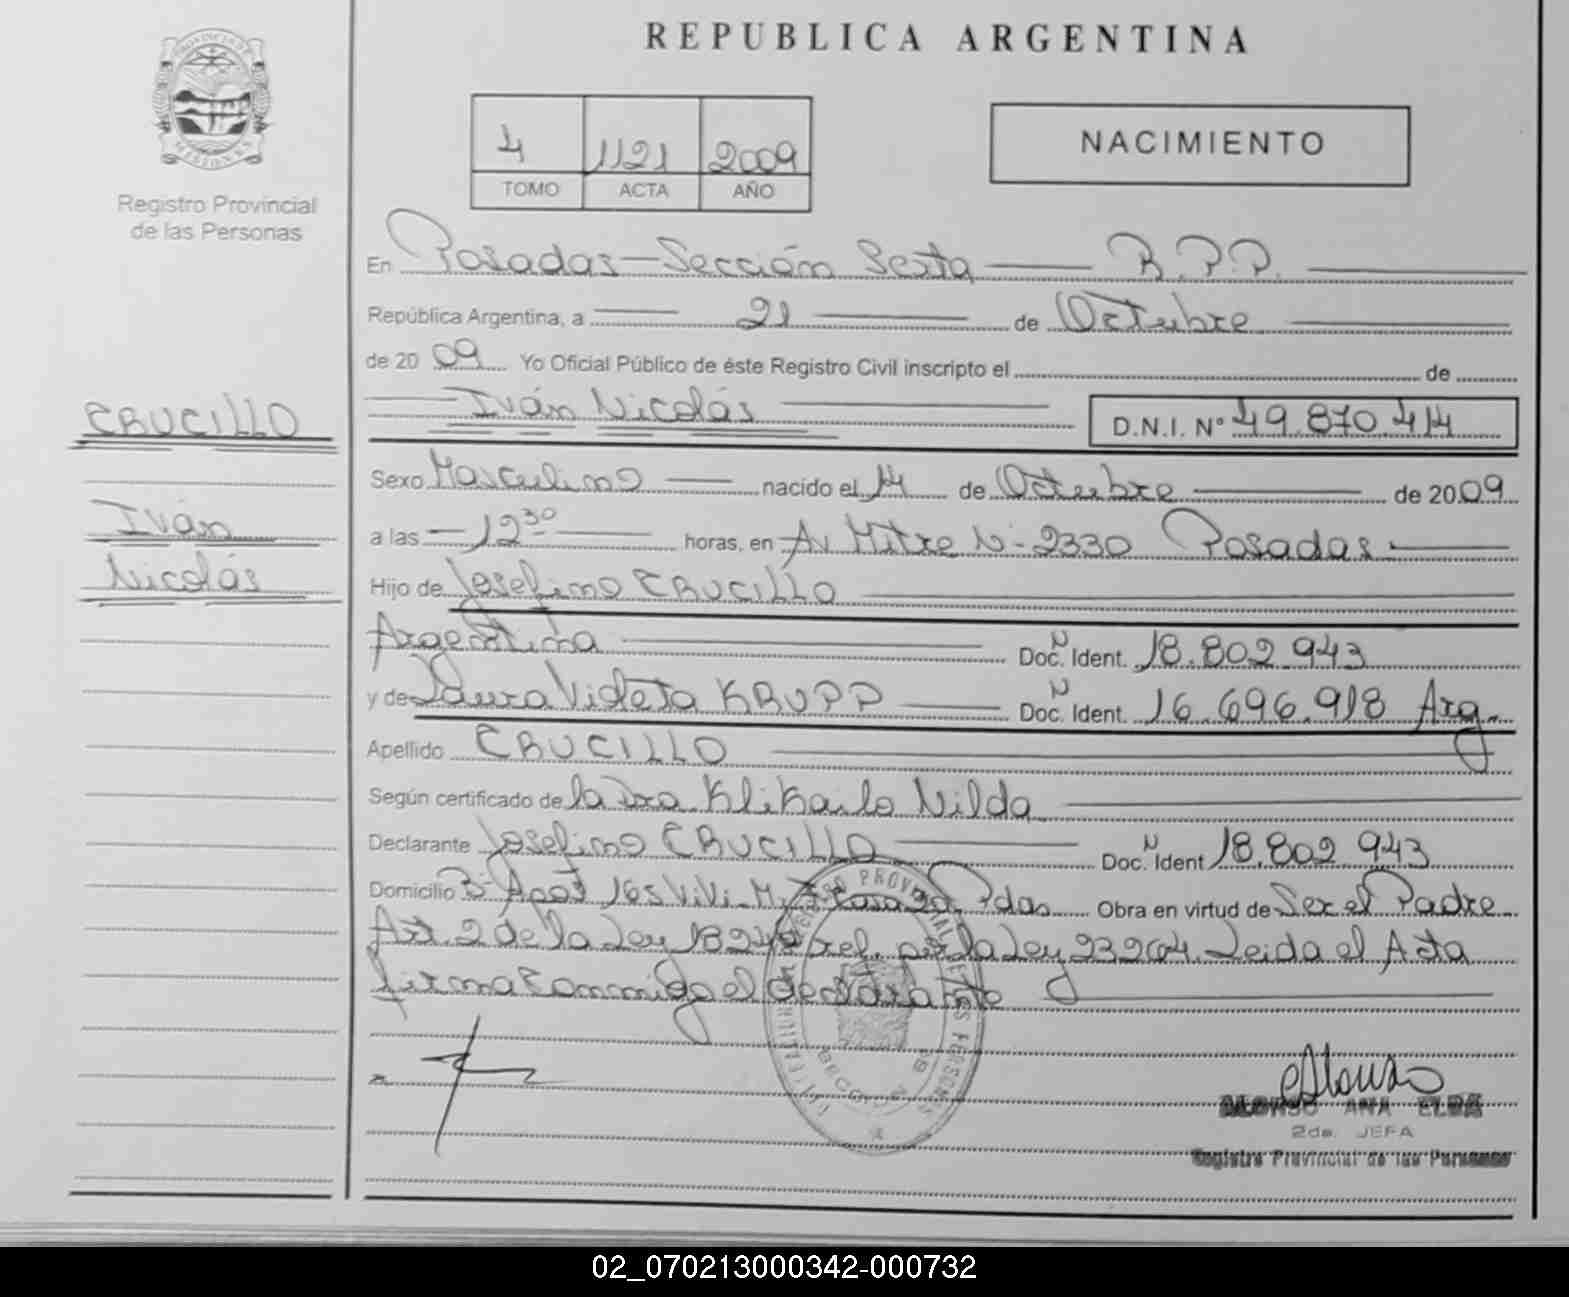 REPUBLICA ARGENTINA
PROVINCIA DE
MISIONES
Registro Provincial
de las Personas
4 1121 2009
TOMO ACTA AÑO
NACIMIENTO
En Posadas - Sección Sexta — R.P.P. —
República Argentina, a — 21 — de Octubre —
de 2009 Yo Oficial Público de éste Registro Civil inscripto el de
— Iván Nicolás — D.N.I. Nº 49.870.414
CRUCILLO
Iván
Nicolás
Sexo Masculino — nacido el 14 de Octubre — de 2009
a las — 12 30 — horas, en Av Mitre N- 2330 Posadas —
Hijo de Josefino CRUCILLO —
Argentina — Doc. N Ident. 18.802.943
y de Laura Violeta KRUPP — Doc. N Ident. 16.696.918 Arg.
Apellido CRUCILLO —
Según certificado de la Dra. Klikailo Nilda —
Declarante Josefino CRUCILLO — Doc. N Ident 18.802.943
Domicilio 165 Vivi. Casa Pdas Obra en virtud de Ser el Padre
Art. 2 de la Ley 18248 la Ley 23264. Leida el Acta
firma conmigo el declarante —
ALONSO ANA ELBA
2da. JEFA
Registro Provincial de las Personas
02_070213000342-000732